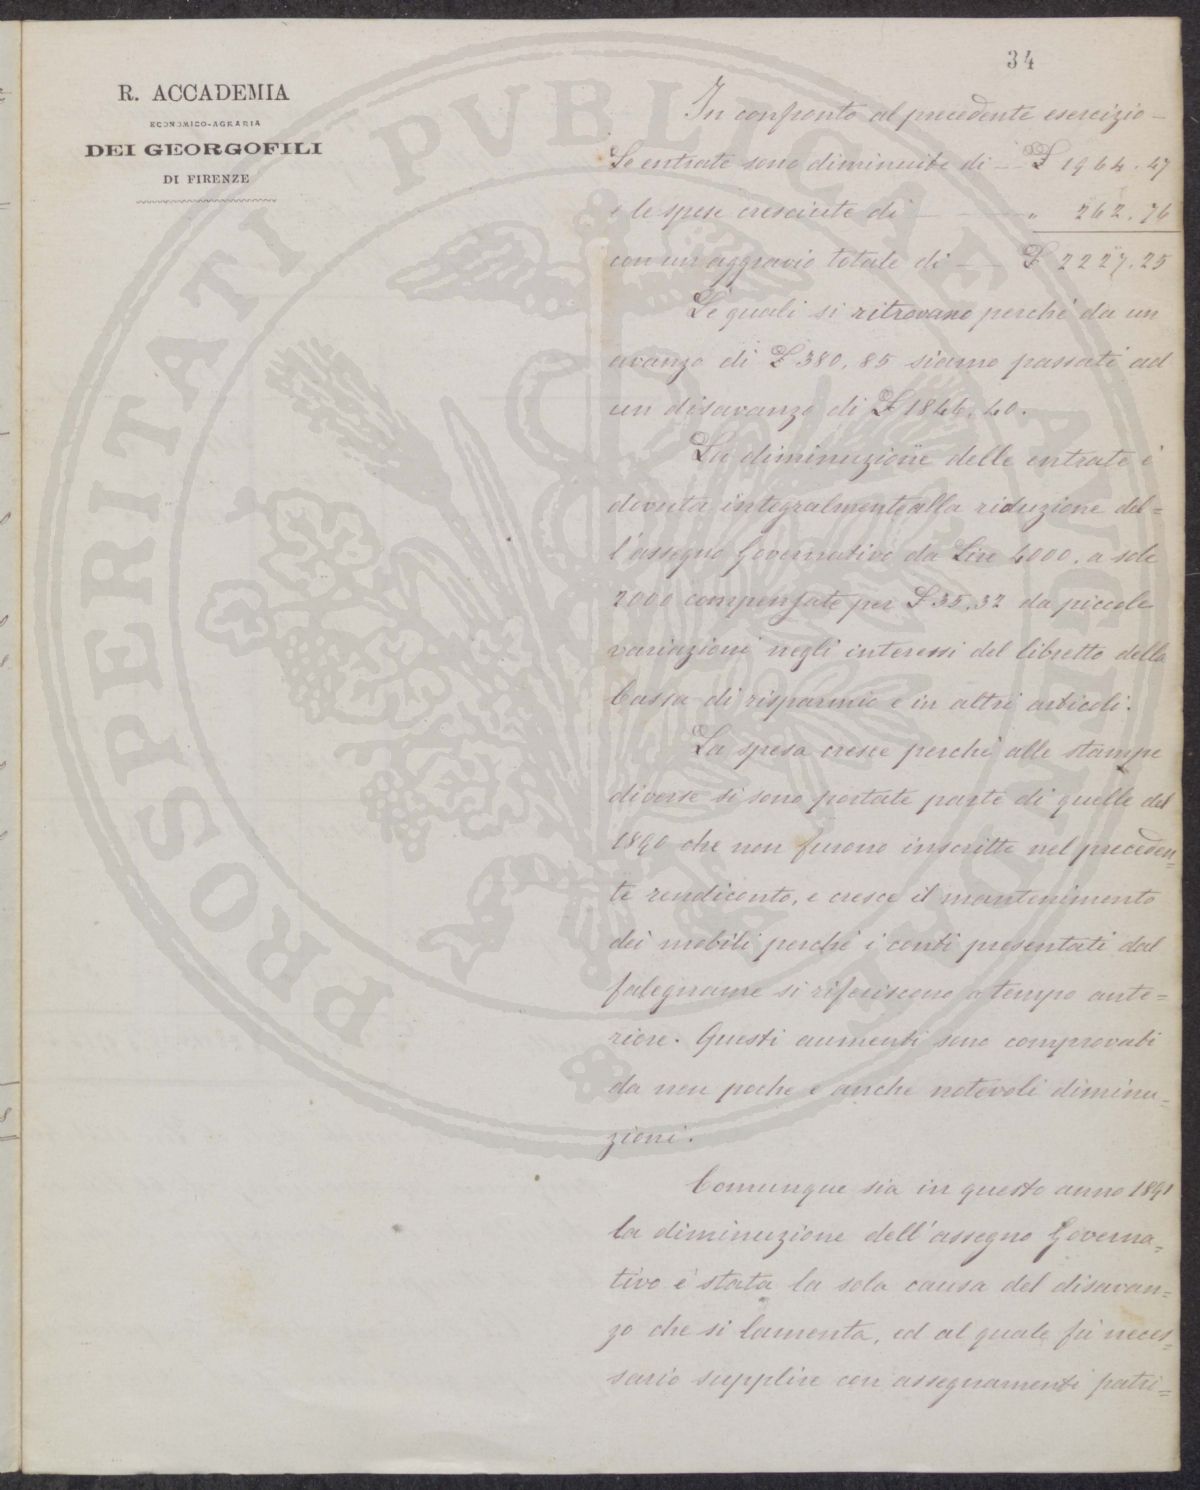 34
R. ACCADEMIA
ECONOMICO-AGRARIA
DEI GEORGOFILI
DI FIRENZE
PROSPERITATI PVBLICAE AVGENDAE
In confronto al precedente esercizio -
Le entrate sono diminuite di — £ 1964.47
e le spese cresciute di — — " 262.76
con un aggravio totale di — £ 2227.25
Le quali si ritrovano perché da un
avanzo di £ 380,85 siamo passati ad
un disavanzo di £ 1846.40.
La diminuzione delle entrate è
dovuta integralmente alla riduzione del=
l'assegno Governativo da Lire 4000, a sole
2000 compensate per £ 35,32 da piccole
variazioni negli interessi del libretto della
Cassa di risparmio e in altri articoli.
La spesa cresce perchè alle stampe
diverse si sono portate parte di quelle del
1890 che non furono inscritte nel preceden=
te rendiconto, e cresce il mantenimento
dei mobili perché i conti presentati dal
falegname si riferiscono a tempo ante=
riore. Questi aumenti sono comprovati
da non poche e anche notevoli diminu=
zioni.
Comunque sia in questo anno 1891
la diminuzione dell'assegno Governa=
tivo è stata la sola causa del disavan=
zo che si lamenta, ed al quale fù neces=
sario supplire con assegnamenti patri=